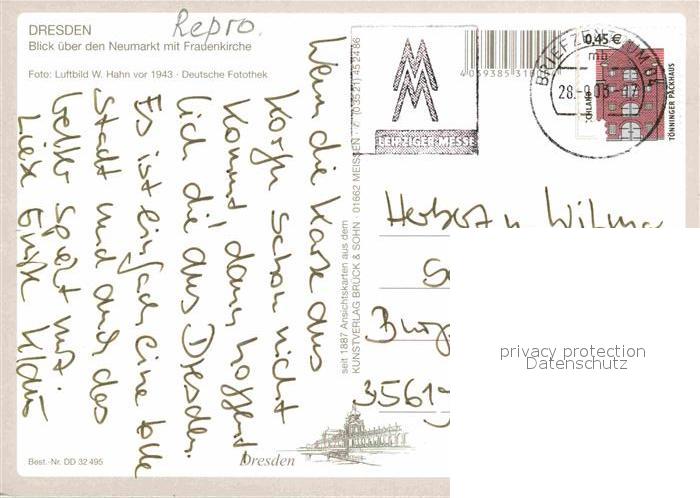 Repro.
DRESDEN
Blick über den Neumarkt mit Frauenkirche
Foto: Luftbild W. Hahn vor 1943 · Deutsche Fotothek
Wenn die Karte aus
Korfu schon nicht
kommt, dann hoffent
lich die aus Dresden.
Es ist einfach eine tolle
Stadt und das
Wetter spielt mit.
Liebe Grüße Klaus
Best.-Nr. DD 32 495
Dresden
seit 1887 Ansichtskarten aus dem
KUNSTVERLAG BRÜCK & SOHN · 01662 MEISSEN · (0 35 21) 45 24 86
LEIPZIGER MESSE
BRIEFZENTRUM 04
mb
28.-9.03-17
0,45 €
TÖNNINGER PACKHAUS
Herbert u. Wilma
35619
privacy protection
Datenschutz